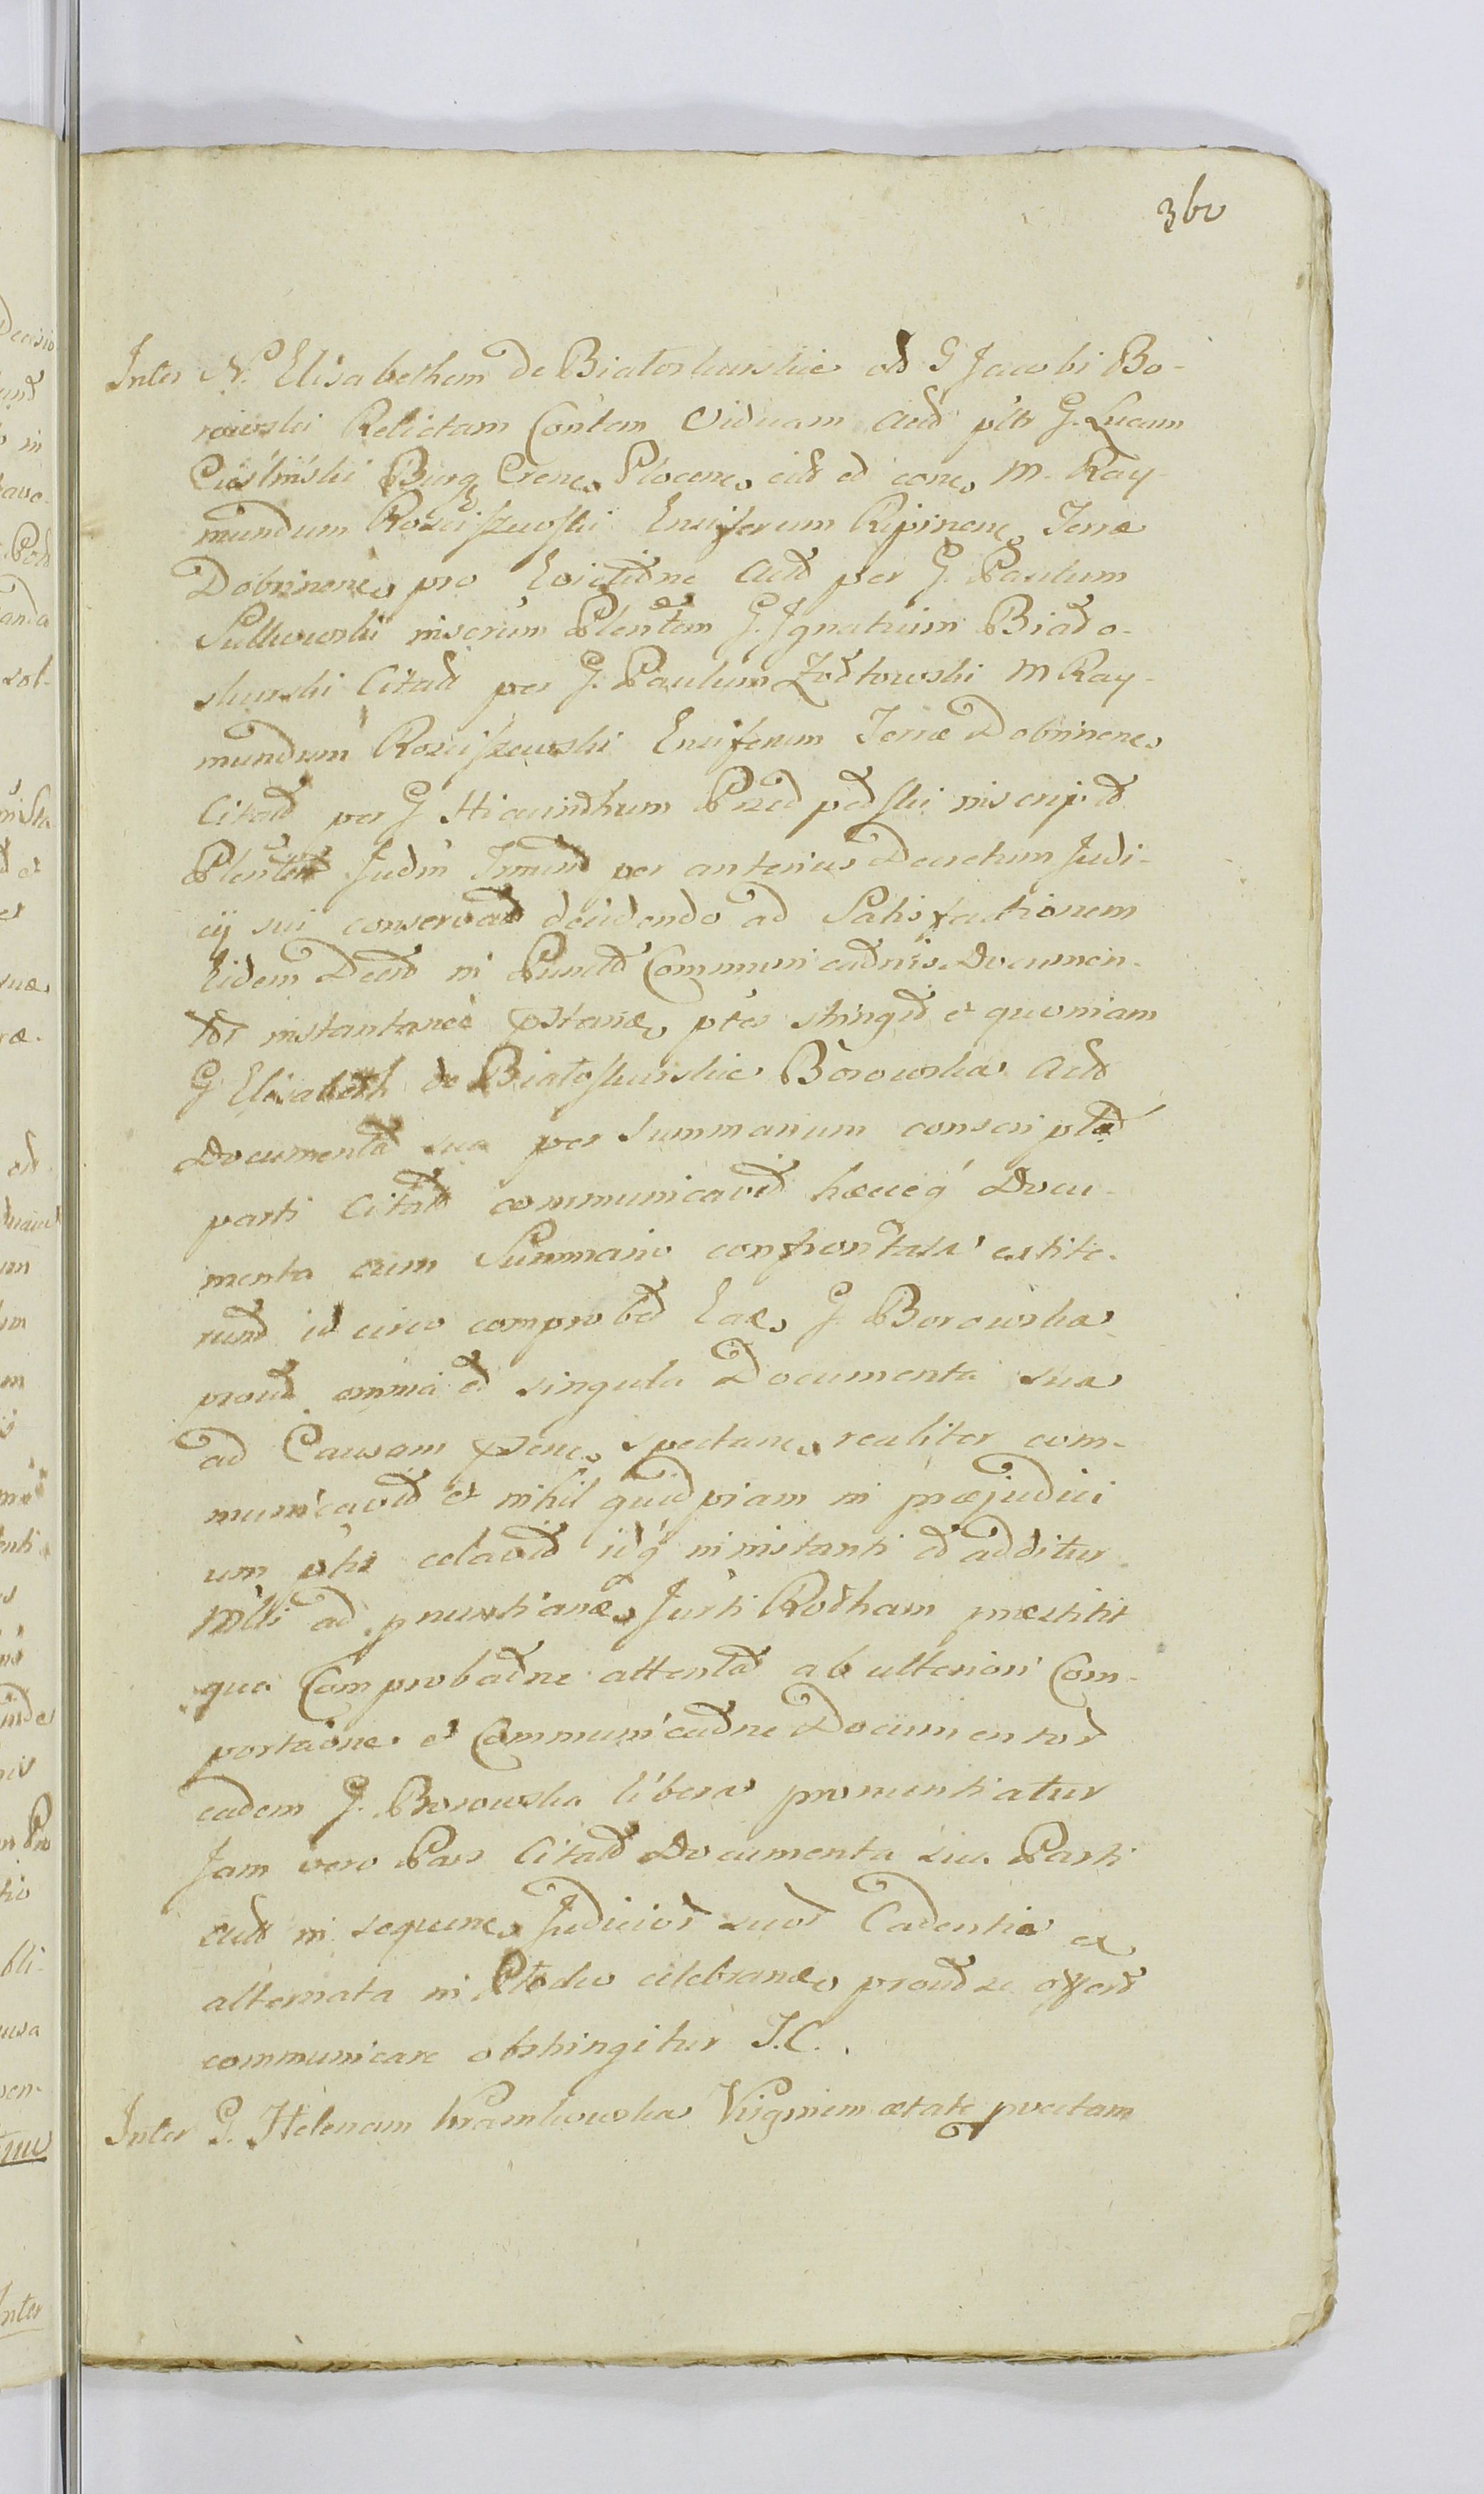 360
Inter N. Elisabetham de Białoskurskie olb G Jacobi Bo-
rowski Relictam Contem Viduam Actd pltr G. Lucam
Cieśliński Burg Crenc. Plocenc. cilt ed conc. M. Ray-
mundum Rosciszewski Ensiferum Ripinenc. Terræ
Dobrinenc. pro Evictidne Actd per G. Paulum
Sulkowski inscrum Plentem G. Ignatium Biało-
skurski Citatd per G. Paulum Żołtowski M Ray-
mundum Rosciszewski Ensiferum Terræ Dobrinenc.
Citatd per G Hiacinthum Przedpełski inscriptd
Plentem Judm Trmund per anterius Decretum Judi-
cij sui conservatd decidendo ad Satisfactionem
Eidem Decrd in Punctd Communicadnis Documen-
tor instantanee pstanæ. ptes stringid et quoniam
G Elisabeth de Białoskurskie Borowska Actd
Documentd sua per Summarium conscriptd
parti Citatd communicavid hæcceq Docu-
menta cum Summario confrontata extite-
rund id circo comprobd Eae. G. Borowska
proud omnia ed singula Documenta sua
ad Causam psenc. spectanc. realiter com-
municavid et nihil quidpiam in præjudici
um ptis celavid idq in instanti ed additur
Mlti ad pnuntianæ. Jurti Rotham præstitit
qua Comprobadne attentd ab ulteriori Com-
portaone et Communicadne Documentor
eadem G. Borowska libera pronuntiatur
Jam vero Pars Citatd Documenta sua Parti
Actd in sequenc. Judicior suor Cadentia ex
alternata in Płocko celebranæ. proud se offerd
communicare obstringitur J.C.
Inter G. Helenam Kramkowska Virginem ætate pvectam